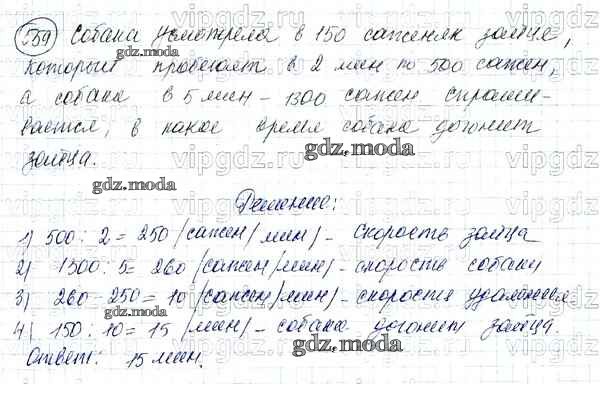 559 Собака усмотрела в 150 саженях зайца,
который пробегает в 2 мин по 500 сажен,
а собака в 5 мин – 1300 сажен. Спраши-
вается, в какое время собака догонит
зайца.
Решение:
1) 500 : 2 = 250 (сажен/мин) – скорость зайца
2) 1300 : 5 = 260 (сажен/мин) – скорость собаки
3) 260 - 250 = 10 (сажен/мин) – скорость удаления
4) 150 : 10 = 15 (мин) – собака догонит зайца.
Ответ: 15 мин.
vipgdz.ru
gdz.moda